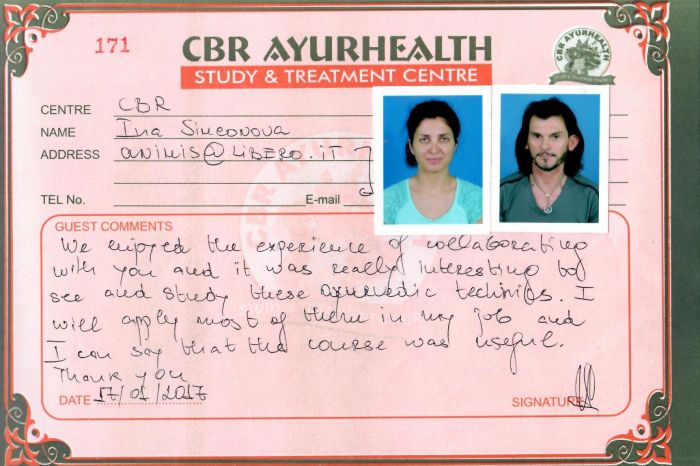 171
CBR AYURHEALTH
STUDY & TREATMENT CENTRE
CBR AYURHEALTH
CENTRE CBR
NAME Ina Simeonova
ADDRESS animis@LIBERO.iT
TEL No. E-mail
CBR AYUR
GUEST COMMENTS
We enjoyed the experience of collaborating
with you and it was really interesting to
see and study these ayurvedic technics. I
will apply most of them in my job and
I can say that the course was useful.
Thank you
DATE 17/01/2017
SIGNATURE